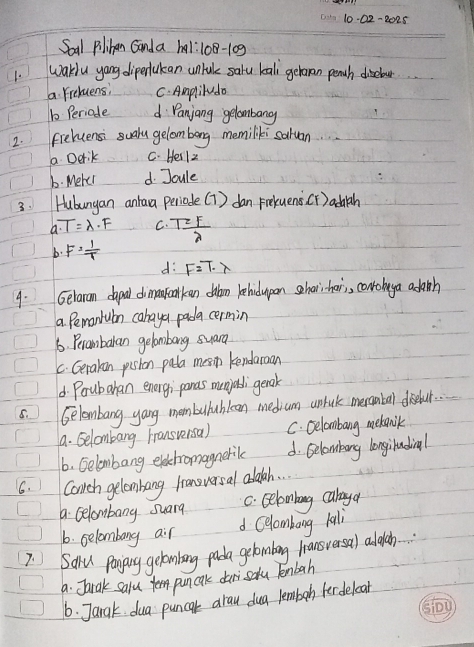 Date: 10-02-2025
Soal Pilihan Ganda hal: 108-109
1. Waktu yang diperlukan untuk satu kali getaran penuh disebut...
a. Frekuensi c. Amplitudo
b. Periode d. Panjang gelombang
2. Frekuensi suatu gelombang memiliki satuan...
a. Detik c. Hertz
b. Meter d. Joule
3. Hubungan antara periode (T) dan Frekuensi (F) adalah
a. T = λ . F c. T = F/λ
b. F = 1/T
d. F = T. λ
4. Getaran dapat dimanfaatkan dalam kehidupan sehari-hari, contohnya adalah
a. Pemantulan cahaya pada cermin
b. Perambatan gelombang suara
c. Gerakan piston pada mesin kendaraan
d. Perubahan energi panas menjadi gerak
5. Gelombang yang membutuhkan medium untuk merambat disebut...
a. Gelombang transversal c. Gelombang mekanik
b. Gelombang elektromagnetik d. Gelombang longitudinal
6. Contoh gelombang transversal adalah...
a. Gelombang suara c. Gelombang cahaya
b. Gelombang air d Gelombang tali
7. Satu panjang gelombang pada gelombang transversal adalah...
a. Jarak satu puncak dari satu lembah
b. Jarak dua puncak atau dua lembah terdekat
SiDU